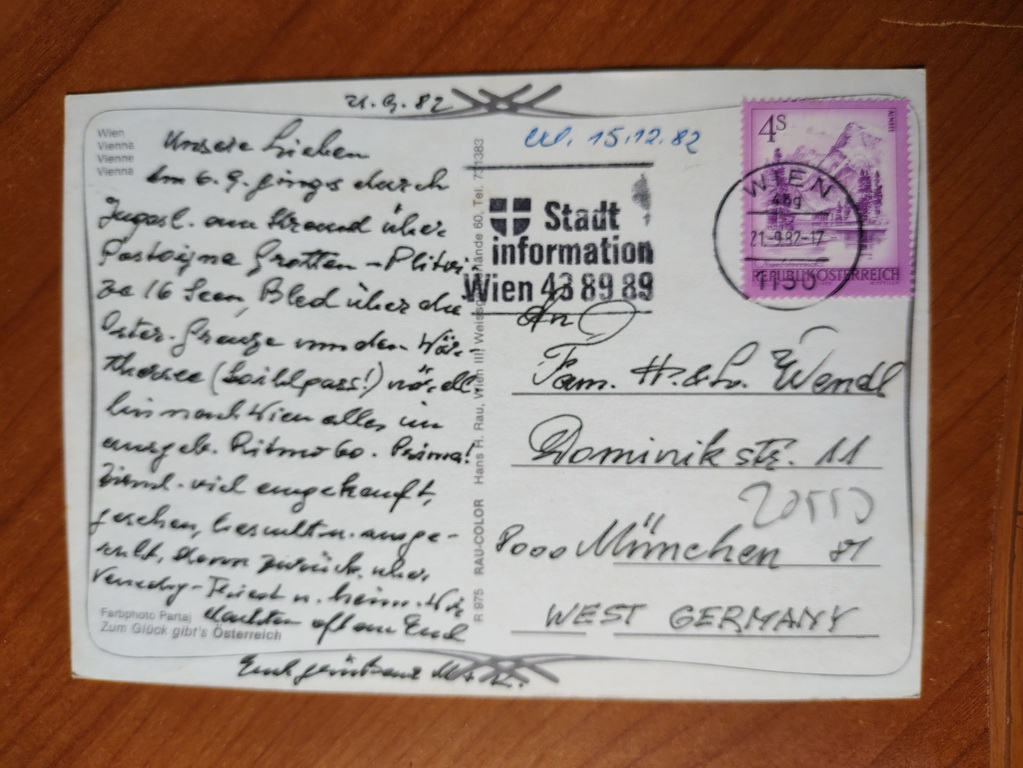 21.9.82
Wien
Vienna
Vienne
Vienna
Unsere Lieben
Am 6.9. gings durch
Jugosl. am Strand über
Postoigna Grotten - Plitvi
ze 16 Seen, Bled über die
Öster. Grenze von den Wör-
thersee (Loiblpass!)
hin nach Wien alles im
Ritmo 60. Prima!
Zieml. viel eingekauft,
gesehen, besucht u. ausge-
ruht, dann zurück über
Venedig-Triest u. heim. Wir
dachten oft an Euch
Farbphoto Partaj
Zum Glück gibt's Österreich
Euch M. & L.
R 975 RAU-COLOR Hans R. Rau, Wien III, Weissg lände 60, Tel. 731383
15.12.82
Stadt
information
Wien 43 89 89
4S
WIEN
21.-9.82-17
1150
REPUBLIK ÖSTERREICH
An
Fam. H. & L. Wendl
Dominikstr. 11
8000 München 81
WEST GERMANY